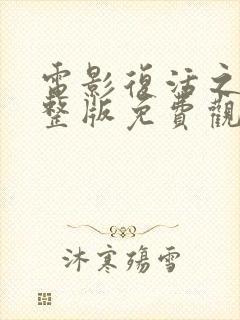 電影復活之
整版免費觀
沐寒殤雪